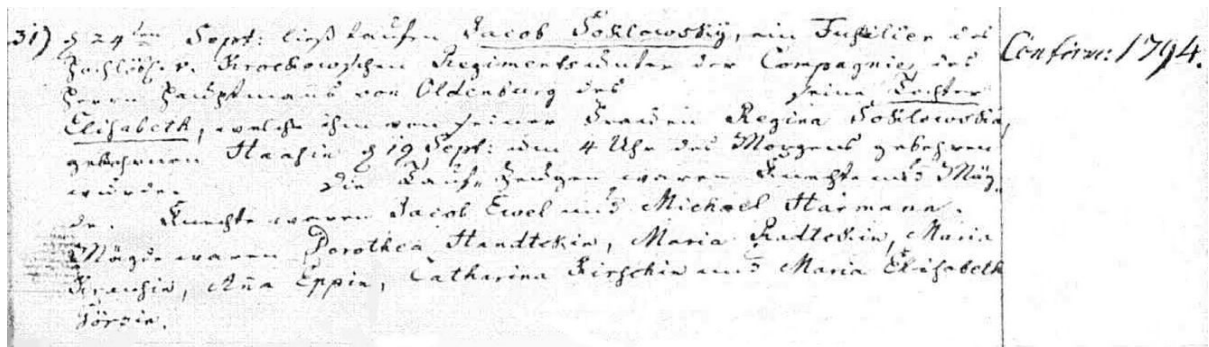 31) d 24ten Sept: ließ taufen Jacob Soklowsky, ein Fusilier des
Hochlöbl. v. Krockowschen Regiments unter der Compagnie des
Herrn Hauptmanns von Oldenburg des seine Tochter
Elisabeth, welche ihm von seiner Frauen Regina Soklowskin,
gebohrnen Haasin d 19 Sept: um 4 Uhr des Morgens gebohren
wurde. Die Tauf-Zeugen waren Knechte und Mäg-
de. Knechte waren Jacob Ewel und Michael Harmann.
Mägde waren Dorothea Handtkin, Maria Radtckin, Maria
Krausin, Aña Eppin, Catharina Kirschin und Maria Elisabeth
Görzin.
Confirm: 1794.